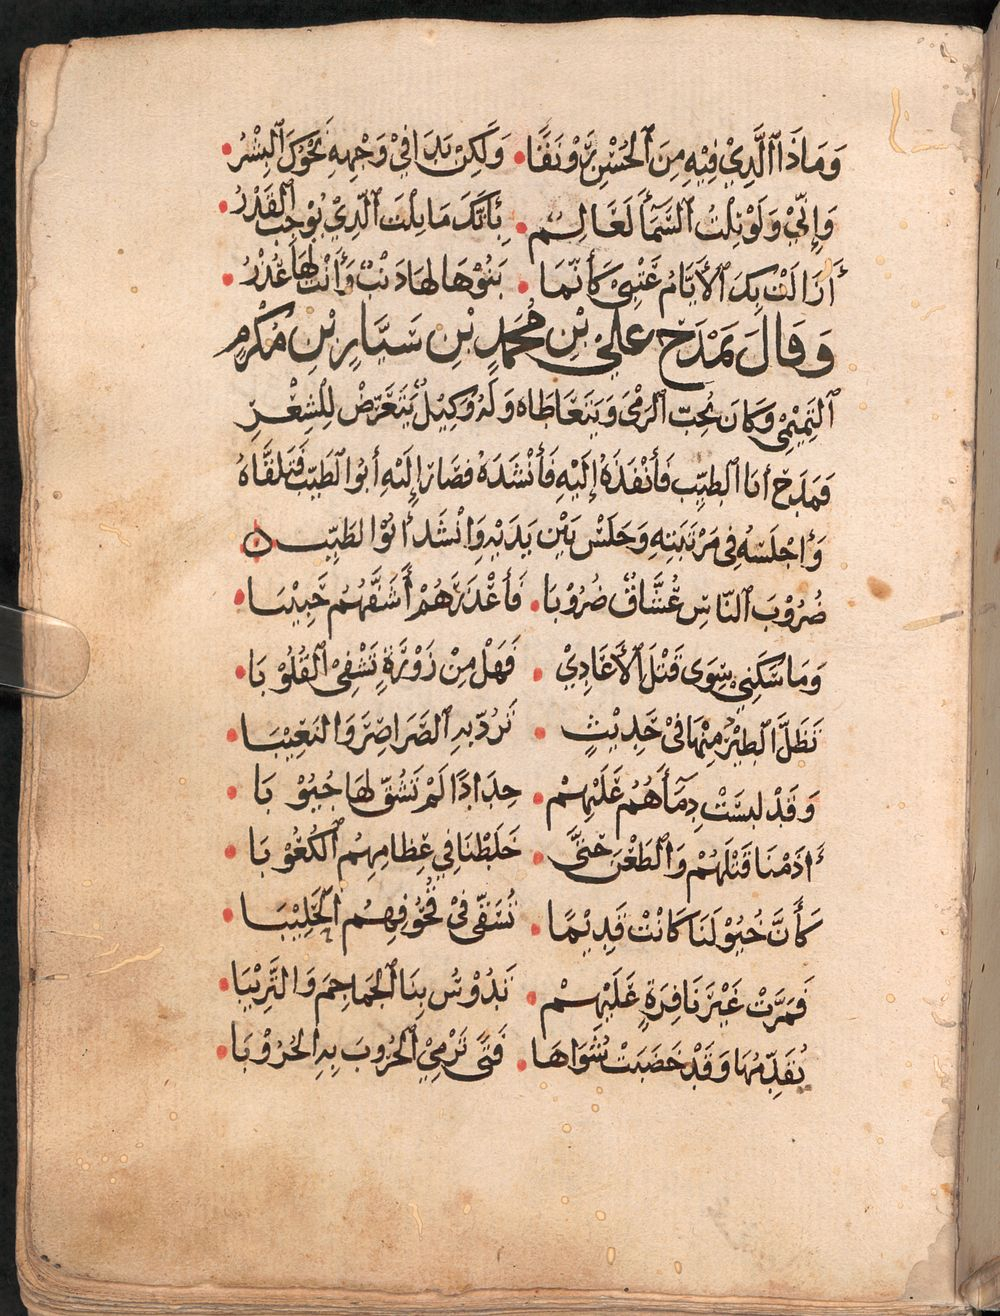 وَمَاذَا ٱلَّذِيْ فِيْهِ مِنَ ٱلْحُسْنِ رَوْنَقًا • وَلَكِنْ بَدَا فِيْ وَجْهِهِ نَحْوَكَ ٱلْبِشْرُ •
وَإِنِّيْ وَلَوْ نِلْتُ ٱلسَّمَآءَ لَعَالِمٌ • بِأَنَّكَ مَا نِلْتَ ٱلَّذِيْ يُوْجِبُ ٱلْقَدْرُ •
أَزَالَتْ بِكَ ٱلْأَيَّامُ عَتْبِىْ كَأَنَّمَا • بَنُوْهَا لَهَا ذَنْبٌ وَأَنْتَ لَهَا عُذْرُ •
وَقَالَ يَمْدَحُ عَلِيَّ بْنَ مُحَمَّدِ بْنِ سَيَّارِ بْنِ مُكْرَمٍ
ٱلتَّمِيْمِيِّ وَكَانَ يُحِبُّ ٱلرَّمْىَ وَيَتَعَاطَاهُ وَلَهُ وَكِيْلٌ يَتَعَرَّضُ لِلشِّعْرِ
فَمَدَحَ أَبَا ٱلطَّيِّبِ فَأَنْفَذَهُ إِلَيْهِ فَأَنْشَدَهُ فَصَارَ إِلَيْهِ أَبُو ٱلطَّيِّبِ فَتَلَقَّاهُ
وَأَجْلَسَهُ فِى مَرْتَبَتِهِ وَجَلَسَ بَيْنَ يَدَيْهِ وَأَنْشَدَ أَبُو ٱلطَّيِّبِ
ضُرُوْبُ ٱلنَّاسِ عُشَّاقٌ ضُرُوْبَا • فَأَعْذَرُهُمْ أَشَفُّهُمْ حَبِيْبَا •
وَمَا سَكَنِيْ سِوَى قَتْلِ ٱلْأَعَادِيْ • فَهَلْ مِنْ زَوْرَةٍ تَشْفِى ٱلْقُلُوْبَا •
تَظَلُّ ٱلطَّيْرُ مِنْهَا فِىْ حَدِيْثٍ • تَرُدُّ بِهِ ٱلصَّرَاصِرَ وَٱلنَّعِيْبَا •
وَقَدْ لَبِسَتْ دِمَآءَهُمُ عَلَيْهِمْ • حِدَادًا لَمْ تَشُقَّ لَهَا جُيُوْبَا •
أَدَمْنَا قَتْلَهُمْ وَٱلطَّعْنَ حَتَّى • خَلَطْنَا فِي عِظَامِهِمُ ٱلْكُعُوْبَا •
كَأَنَّ خُيُوْلَنَا كَانَتْ قَدِيْمًا • تُسَقَّى فِىْ قُحُوْفِهِمُ ٱلْحَلِيْبَا •
فَمَرَّتْ غَيْرَ نَافِرَةٍ عَلَيْهِمْ • تَدُوْسُ بِنَا ٱلْجَمَاجِمَ وَٱلتَّرِيْبَا •
يُقَدِّمُهَا وَقَدْ خَضَبَتْ شَوَاهَا • فَتًى تَرْمِيْ ٱلْحُرُوبَ بِهِ ٱلْحُرُوْبَا •